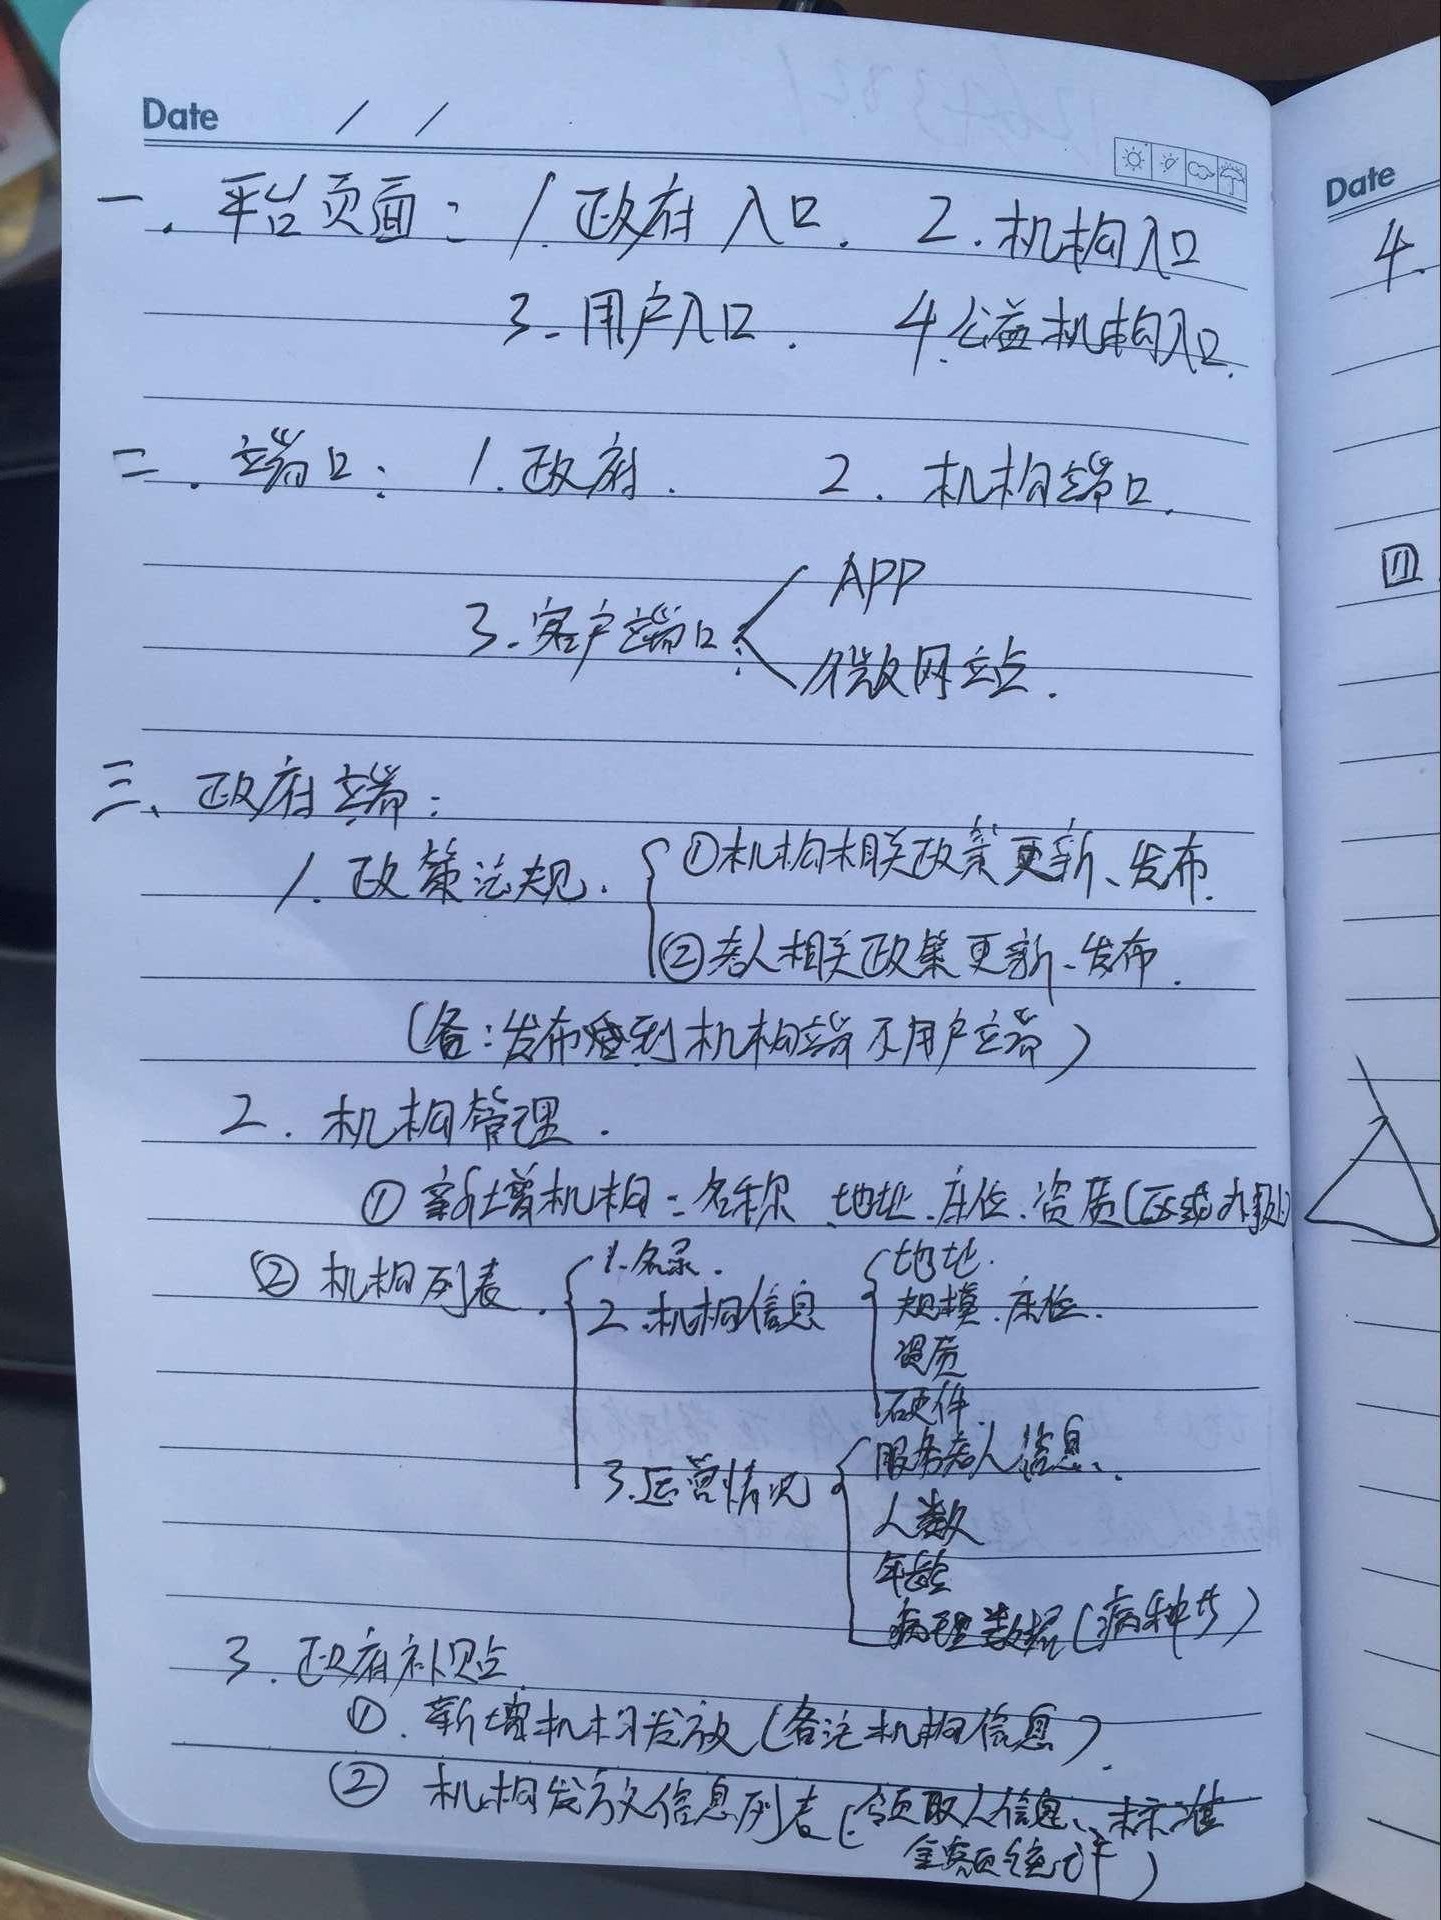 Date / /
一. 平台页面: 1.政府入口. 2.机构入口
3. 用户入口. 4.公益机构入口.
二. 端口: 1.政府. 2. 机构端口.
3.客户端口: APP
微网站点.
三、政府端:
1.政策法规. ①机构相关政策更新、发布.
②老人相关政策更新、发布.
(备:发布到机构端不用户端)
2. 机构管理.
①新增机构: 名称、地址、床位、资质(
②机构列表. 1.名录.
2.机构信息 地址.
规模、床位.
资质
硬件
3.运营情况 服务老人信息、
人数
年龄
病理数据(病种等)
3. 政府补贴
①. 新增机构发放(备注机构信息).
② 机构发放信息列表(领取人信息、标准
金额统计)
Date
4.
四